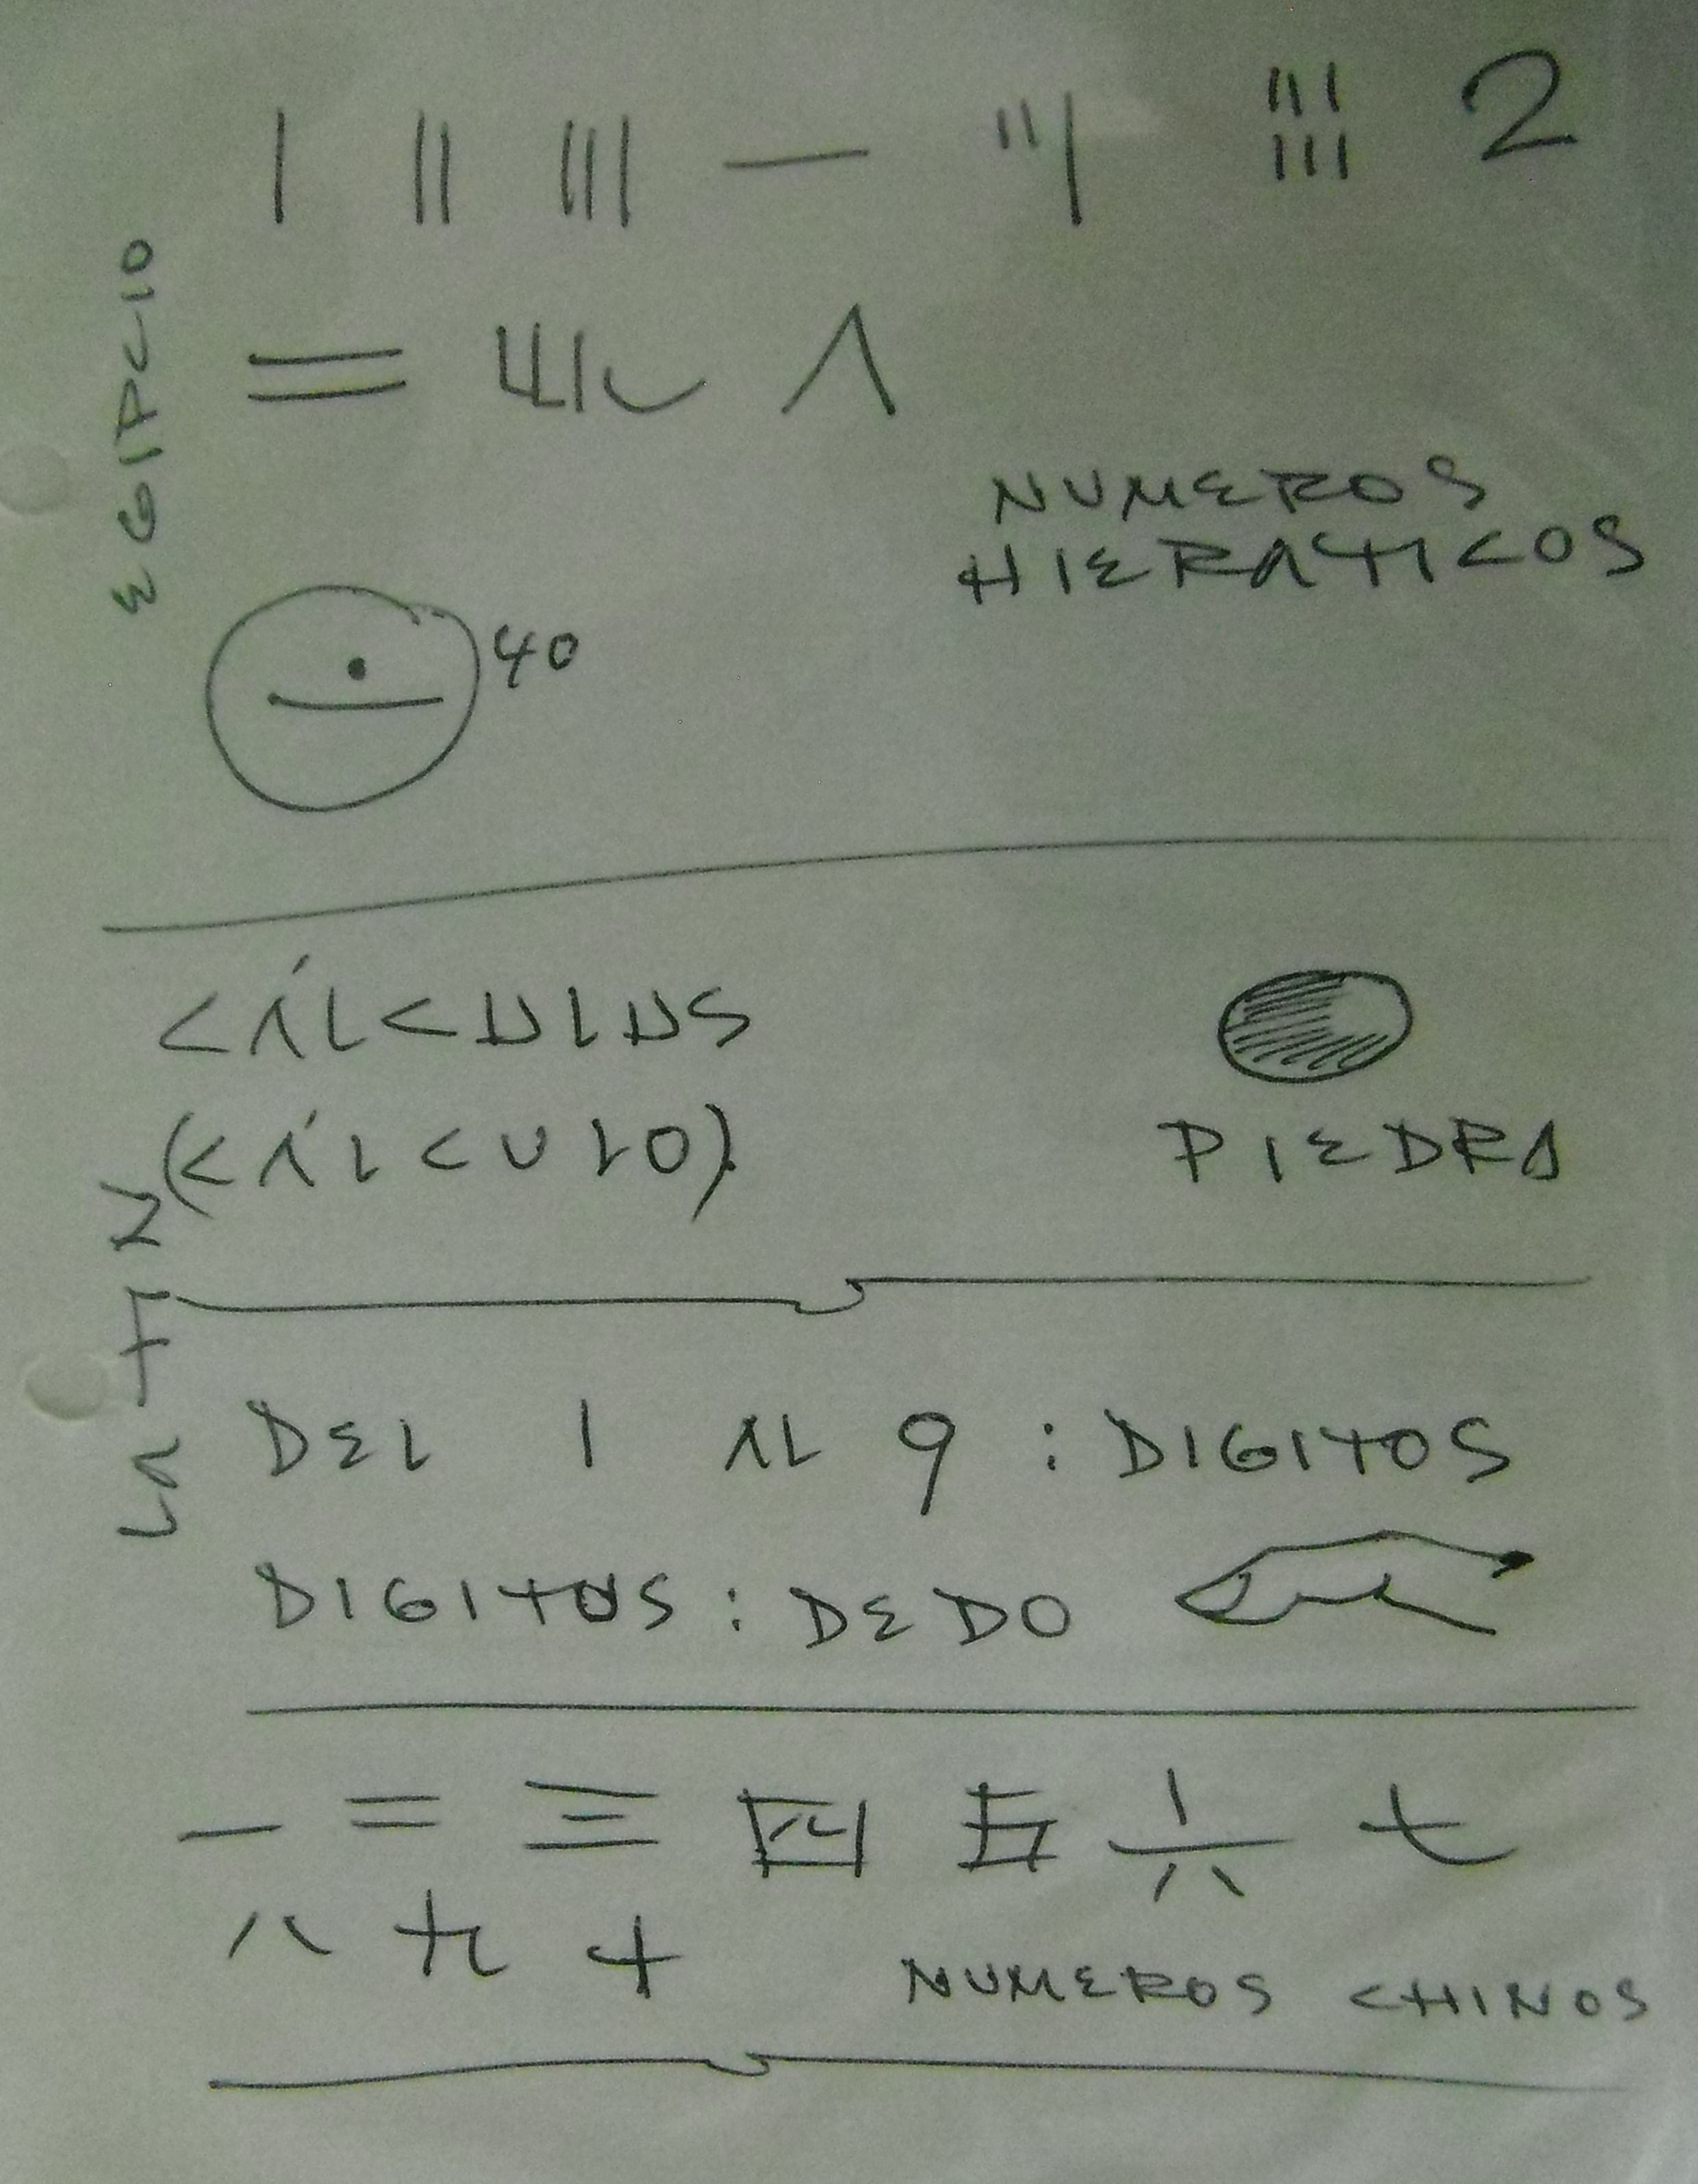 EGIPCIO
| || ||| — 2
= Λ
NUMEROS
HIERATICOS
40
LATIN
CÁLCULUS
(CÁLCULO).
PIEDRA
DEL 1 AL 9 : DIGITOS
DIGITUS : DEDO
一 二 三 四 五 六 七
八 九 十 NUMEROS CHINOS